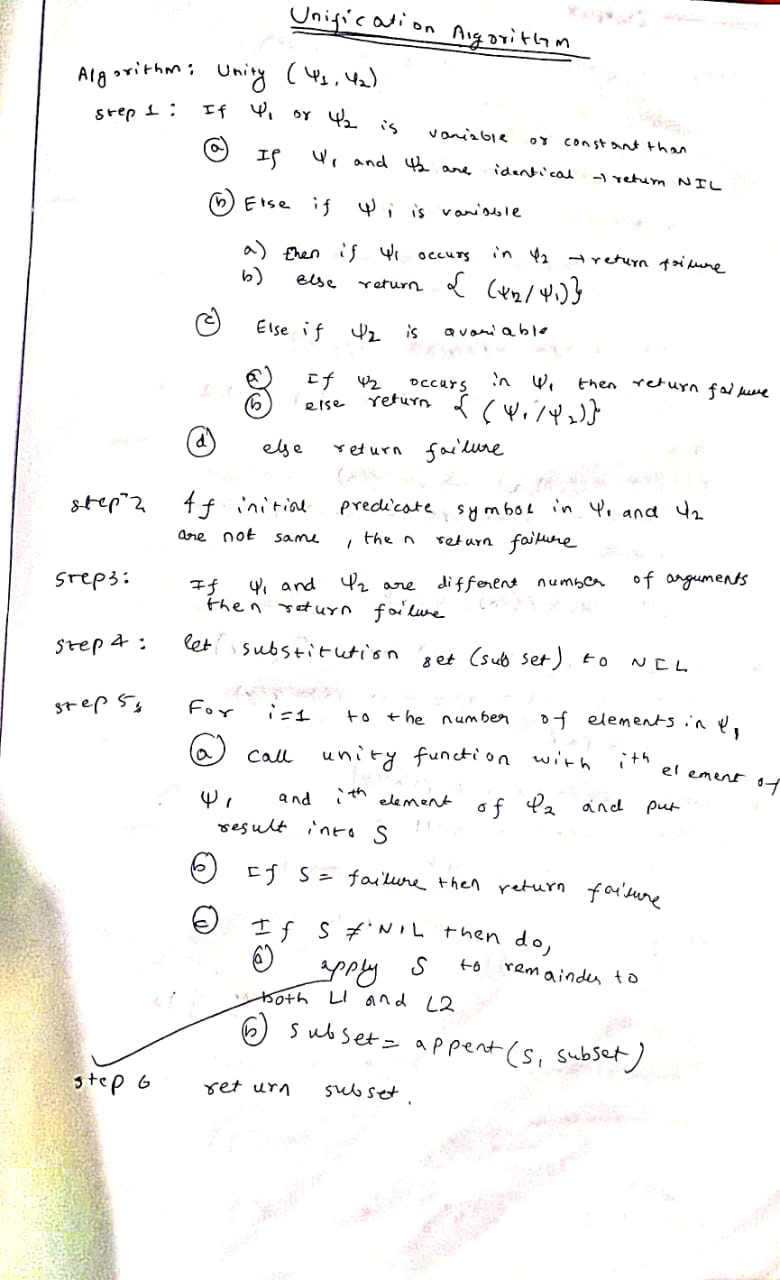 Unification Algorithm
Algorithm: Unity (Ψ1, Ψ2)
step 1: If Ψ1 or Ψ2 is variable or constant than
(a) If Ψ1 and Ψ2 are identical → return NIL
(b) Else if Ψi is variable
a) then if Ψ1 occurs in Ψ2 → return failure
b) else return { (Ψ2/Ψ1)}
(c) Else if Ψ2 is a variable
(a) If Ψ2 occurs in Ψ1 then return failure
(b) else return { (Ψ1/Ψ2)}
(d) else return failure
step 2 If initial predicate symbol in Ψ1 and Ψ2
are not same, then return failure
step3: If Ψ1 and Ψ2 are different number of arguments
then return failure
step 4: let substitution set (sub set) to NIL
step 5: For i=1 to the number of elements in Ψ1
(a) call unity function with ith element of
Ψ1 and ith element of Ψ2 and put
result into S
(b) If S = failure then return failure
(c) If S ≠ NIL then do,
(a) apply S to remainder to
both L1 and L2
(b) subset = appent (S, subset)
step 6 return subset.